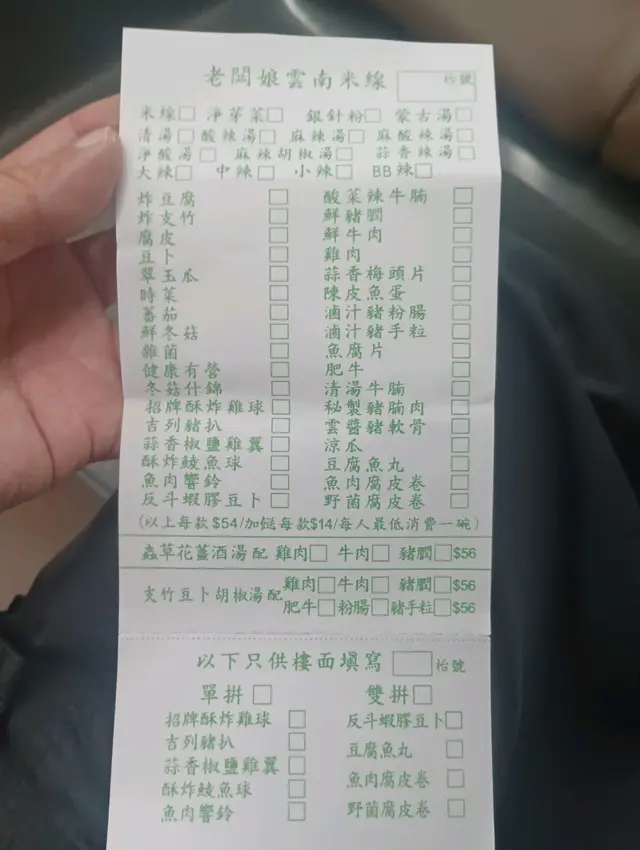 老闆娘雲南米線 枱號
米線□ 淨芽菜□ 銀針粉□ 蒙古湯□
清湯□ 酸辣湯□ 麻辣湯□ 麻酸辣湯□
淨酸湯□ 麻辣胡椒湯□ 蒜香辣湯□
大辣□ 中辣□ 小辣□ BB辣□
炸豆腐□ 酸菜辣牛腩□
炸支竹□ 鮮豬膶□
腐皮□ 鮮牛肉□
豆卜□ 雞肉□
翠玉瓜□ 蒜香梅頭片□
時菜□ 陳皮魚蛋□
蕃茄□ 滷汁豬粉腸□
鮮冬菇□ 滷汁豬手粒□
雜菌□ 魚腐片□
健康有營□ 肥牛□
冬菇什錦□ 清湯牛腩□
招牌酥炸雞球□ 秘製豬腩肉□
吉列豬扒□ 雲醬豬軟骨□
蒜香椒鹽雞翼□ 涼瓜□
酥炸鯪魚球□ 豆腐魚丸□
魚肉響鈴□ 魚肉腐皮卷□
反斗蝦膠豆卜□ 野菌腐皮卷□
(以上每款$54/加餸每款$14/每人最低消費一碗)
蟲草花薑酒湯配 雞肉□ 牛肉□ 豬膶□$56
支竹豆卜胡椒湯配 雞肉□ 牛肉□ 豬膶□$56
肥牛□ 粉腸□ 豬手粒□$56
以下只供樓面填寫 □枱號
單拼□ 雙拼□
招牌酥炸雞球□ 反斗蝦膠豆卜□
吉列豬扒□ 豆腐魚丸□
蒜香椒鹽雞翼□ 魚肉腐皮卷□
酥炸鯪魚球□ 野菌腐皮卷□
魚肉響鈴□